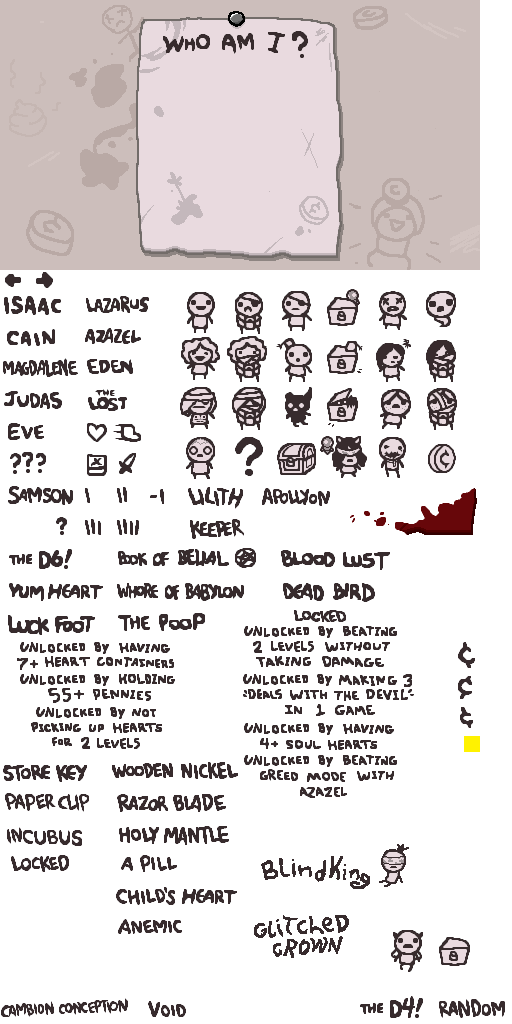 WHO AM I?
ISAAC LAZARUS
CAIN AZAZEL
MAGDALENE EDEN
JUDAS THE LOST
EVE
???
?
SAMSON I II -1 LILITH APOLLYON
? III IIII KEEPER
THE D6! BOOK OF BELIAL BLOOD LUST
YUM HEART WHORE OF BABYLON DEAD BIRD
LUCK FOOT THE POOP
LOCKED
UNLOCKED BY HAVING
7+ HEART CONTAINERS
UNLOCKED BY HOLDING
55+ PENNIES
UNLOCKED BY NOT
PICKING UP HEARTS
FOR 2 LEVELS
UNLOCKED BY BEATING
2 LEVELS WITHOUT
TAKING DAMAGE
UNLOCKED BY MAKING 3
"DEALS WITH THE DEVIL"
IN 1 GAME
UNLOCKED BY HAVING
4+ SOUL HEARTS
UNLOCKED BY BEATING
GREED MODE WITH
AZAZEL
¢
¢
¢
STORE KEY WOODEN NICKEL
PAPER CLIP RAZOR BLADE
INCUBUS HOLY MANTLE
LOCKED A PILL
CHILD'S HEART
ANEMIC
BlindKing
GLITCHED
CROWN
CAMBION CONCEPTION VOID THE D4! RANDOM